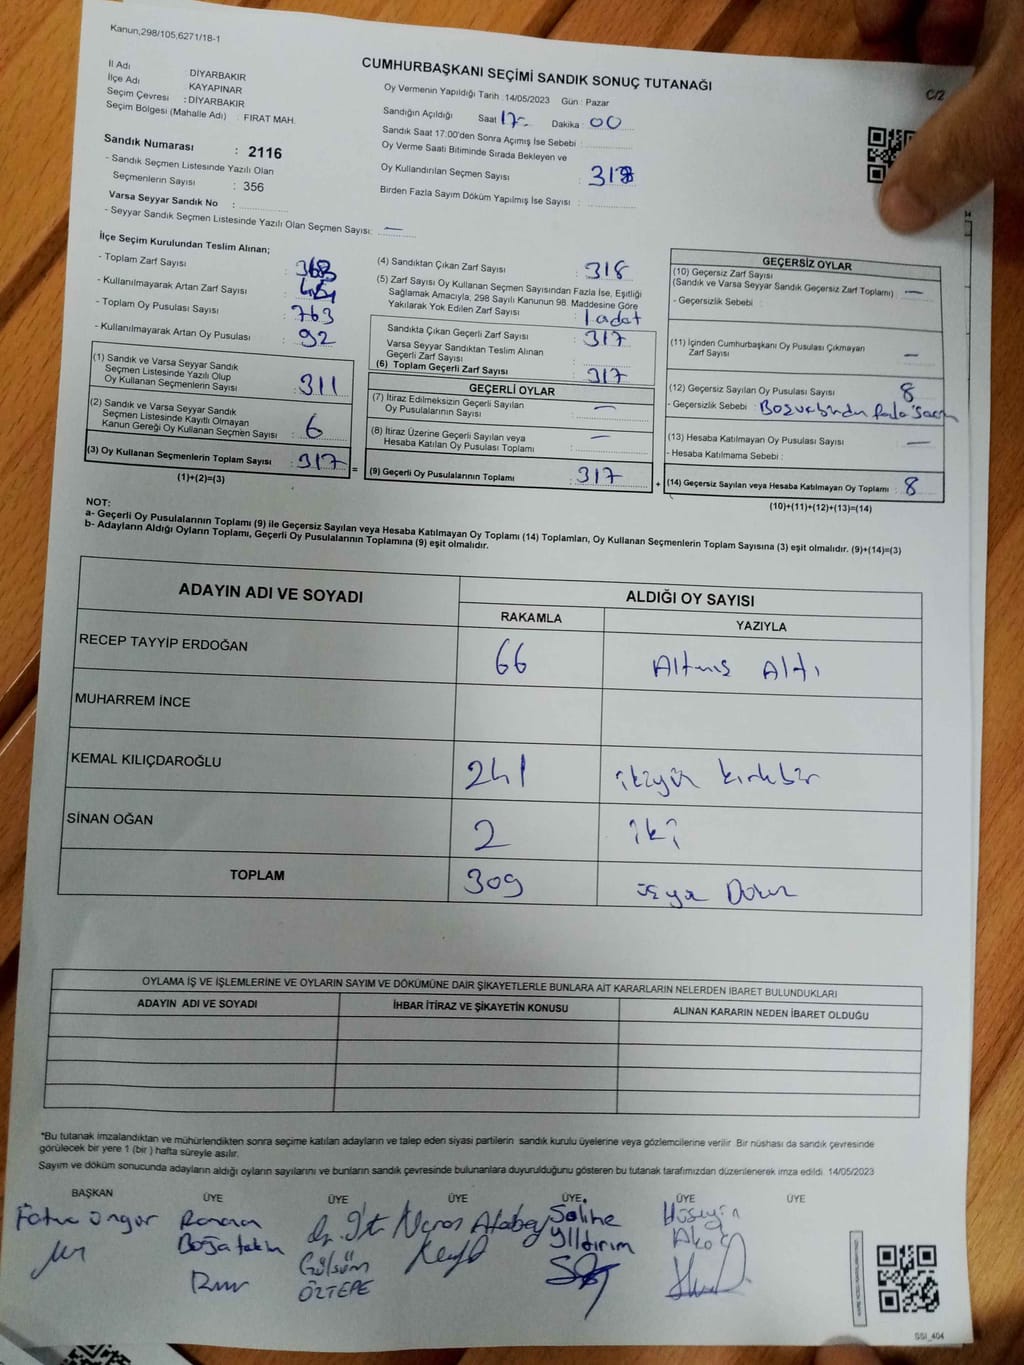 Kanun,298/105,6271/18-1
C/2
CUMHURBAŞKANI SEÇİMİ SANDIK SONUÇ TUTANAĞI
İl Adı DİYARBAKIR
İlçe Adı KAYAPINAR
Seçim Çevresi : DİYARBAKIR
Seçim Bölgesi (Mahalle Adı) : FIRAT MAH.
Sandık Numarası : 2116
- Sandık Seçmen Listesinde Yazılı Olan
Seçmenlerin Sayısı : 356
Varsa Seyyar Sandık No :
- Seyyar Sandık Seçmen Listesinde Yazılı Olan Seçmen Sayısı: —
Oy Vermenin Yapıldığı Tarih : 14/05/2023 Gün : Pazar
Sandığın Açıldığı Saat 17- Dakika : 00
Sandık Saat 17:00'den Sonra Açımış İse Sebebi :
Oy Verme Saati Bitiminde Sırada Bekleyen ve
Oy Kullandırılan Seçmen Sayısı : 318
Birden Fazla Sayım Döküm Yapılmış İse Sayısı :
İlçe Seçim Kurulundan Teslim Alınan;
- Toplam Zarf Sayısı : 368
- Kullanılmayarak Artan Zarf Sayısı :
- Toplam Oy Pusulası Sayısı : 763
- Kullanılmayarak Artan Oy Pusulası : 92
(1) Sandık ve Varsa Seyyar Sandık
Seçmen Listesinde Yazılı Olup
Oy Kullanan Seçmenlerin Sayısı : 311
(2) Sandık ve Varsa Seyyar Sandık
Seçmen Listesinde Kayıtlı Olmayan
Kanun Gereği Oy Kullanan Seçmen Sayısı : 6
(3) Oy Kullanan Seçmenlerin Toplam Sayısı : 317
(1)+(2)=(3)
=
(4) Sandıktan Çıkan Zarf Sayısı : 318
(5) Zarf Sayısı Oy Kullanan Seçmen Sayısından Fazla İse, Eşitliği
Sağlamak Amacıyla, 298 Sayılı Kanunun 98. Maddesine Göre
Yakılarak Yok Edilen Zarf Sayısı : 1 adet
Sandıkta Çıkan Geçerli Zarf Sayısı : 317
Varsa Seyyar Sandıktan Teslim Alınan
Geçerli Zarf Sayısı :
(6) Toplam Geçerli Zarf Sayısı : 317
GEÇERLİ OYLAR
(7) İtiraz Edilmeksizin Geçerli Sayılan
Oy Pusulalarının Sayısı : —
(8) İtiraz Üzerine Geçerli Sayılan veya
Hesaba Katılan Oy Pusulaları Toplamı : —
(9) Geçerli Oy Pusulalarının Toplamı : 317
+
GEÇERSİZ OYLAR
(10) Geçersiz Zarf Sayısı
(Sandık ve Varsa Seyyar Sandık Geçersiz Zarf Toplamı) : —
- Geçersizlik Sebebi :
(11) İçinden Cumhurbaşkanı Oy Pusulası Çıkmayan
Zarf Sayısı : —
(12) Geçersiz Sayılan Oy Pusulası Sayısı : 8
- Geçersizlik Sebebi :
(13) Hesaba Katılmayan Oy Pusulası Sayısı : —
- Hesaba Katılmama Sebebi :
(14) Geçersiz Sayılan veya Hesaba Katılmayan Oy Toplamı : 8
(10)+(11)+(12)+(13)=(14)
NOT:
a- Geçerli Oy Pusulalarının Toplamı (9) ile Geçersiz Sayılan veya Hesaba Katılmayan Oy Toplamı (14) Toplamları, Oy Kullanan Seçmenlerin Toplam Sayısına (3) eşit olmalıdır. (9)+(14)=(3)
b- Adayların Aldığı Oyların Toplamı, Geçerli Oy Pusulalarının Toplamına (9) eşit olmalıdır.
ADAYIN ADI VE SOYADI ALDIĞI OY SAYISI
RAKAMLA YAZIYLA
RECEP TAYYİP ERDOĞAN 66 Altmış Altı
MUHARREM İNCE
KEMAL KILIÇDAROĞLU 241 ikiyüz kırkbir
SİNAN OĞAN 2 iki
TOPLAM 309
OYLAMA İŞ VE İŞLEMLERİNE VE OYLARIN SAYIM VE DÖKÜMÜNE DAİR ŞİKAYETLERLE BUNLARA AİT KARARLARIN NELERDEN İBARET BULUNDUKLARI
ADAYIN ADI VE SOYADI İHBAR İTİRAZ VE ŞİKAYETİN KONUSU ALINAN KARARIN NEDEN İBARET OLDUĞU
*Bu tutanak imzalandıktan ve mühürlendikten sonra seçime katılan adayların ve talep eden siyasi partilerin sandık kurulu üyelerine veya gözlemcilerine verilir. Bir nüshası da sandık çevresinde
görülecek bir yere 1 (bir ) hafta süreyle asılır.
Sayım ve döküm sonucunda adayların aldığı oyların sayılarını ve bunların sandık çevresinde bulunanlara duyurulduğunu gösteren bu tutanak tarafımızdan düzenlenerek imza edildi. 14/05/2023
BAŞKAN ÜYE ÜYE ÜYE ÜYE ÜYE ÜYE
Fatma Üngür
Ramazan Boğatekin
Gülsüm ÖZTEPE
Atabay
Saliha Yıldırım
Hüseyin Akoç
SSI_404